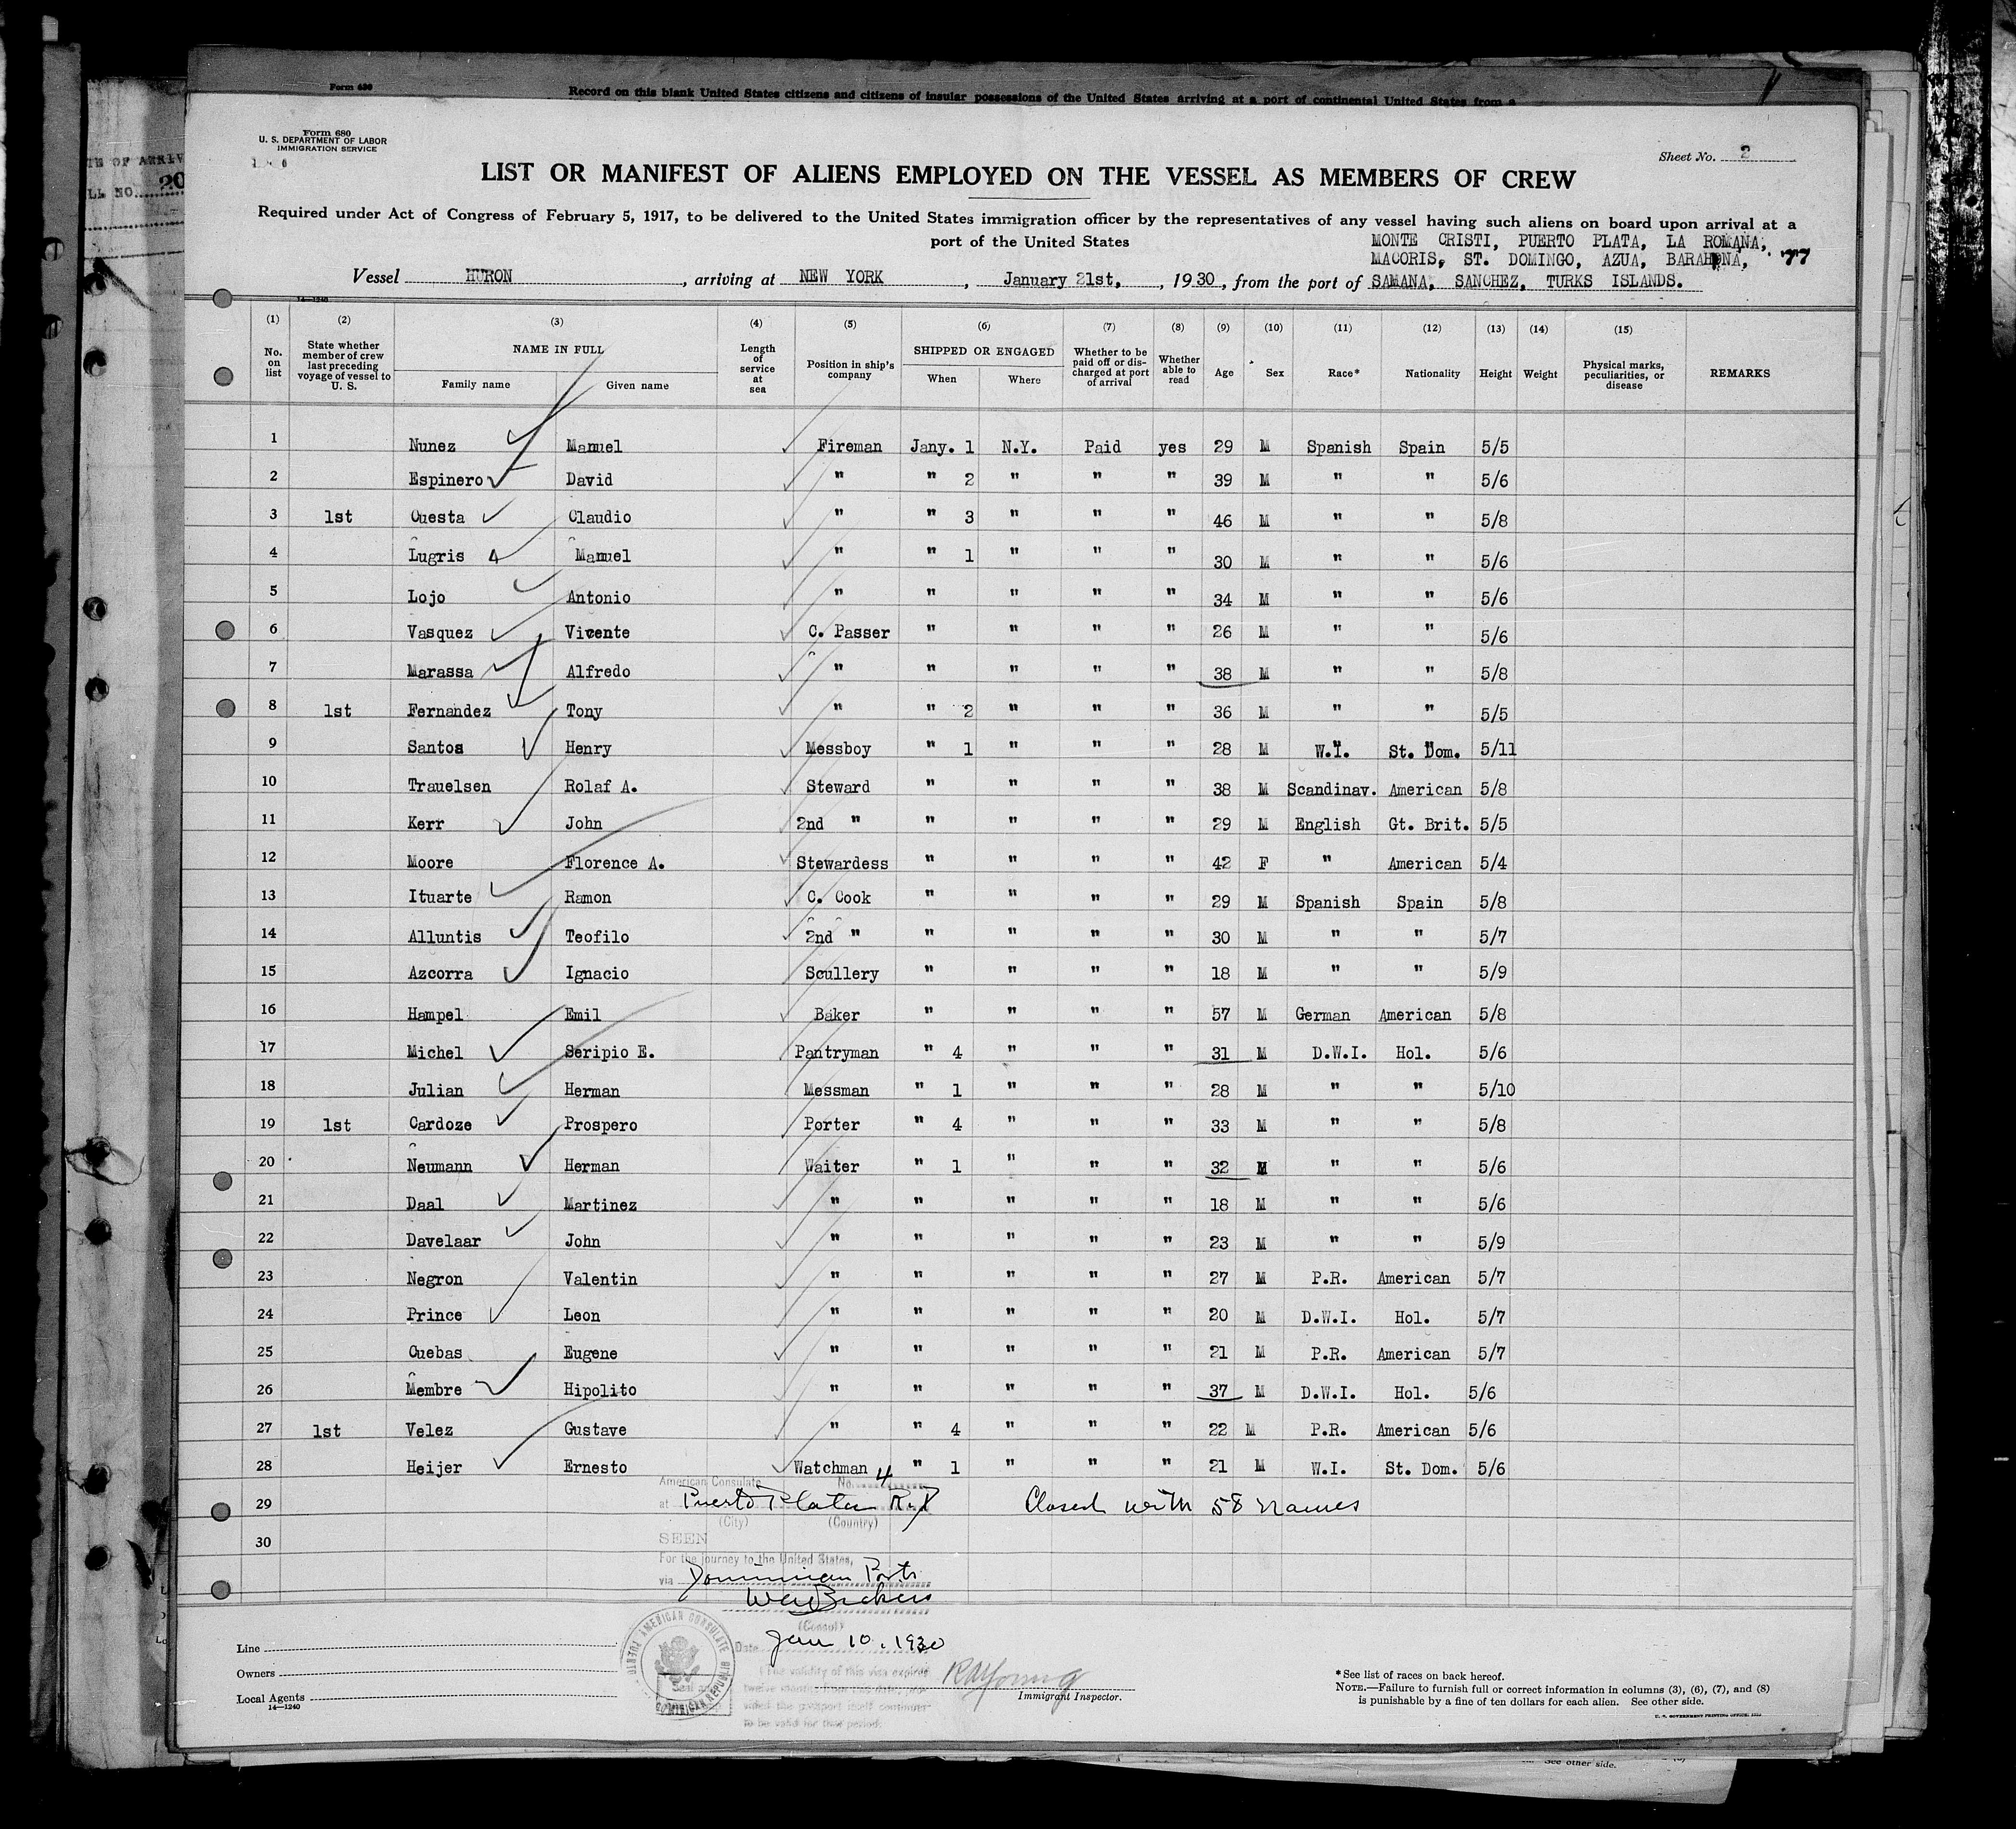 Form 680
Record on this blank United States citizens and citizens of insular possessions of the United States arriving at a port of continental United States from a
Form 680
U. S. DEPARTMENT OF LABOR
IMMIGRATION SERVICE
Sheet No. 2
LIST OR MANIFEST OF ALIENS EMPLOYED ON THE VESSEL AS MEMBERS OF CREW
Required under Act of Congress of February 5, 1917, to be delivered to the United States immigration officer by the representatives of any vessel having such aliens on board upon arrival at a
port of the United States
MONTE CRISTI, PUERTO PLATA, LA ROMANA,
MACORIS, ST. DOMINGO, AZUA, BARAHONA, 77
Vessel HURON, arriving at NEW YORK, January 21st, 1930, from the port of SAMANA, SANCHEZ, TURKS ISLANDS.
14—1240
(1) (2) (3) (4) (5) (6) (7) (8) (9) (10) (11) (12) (13) (14) (15)
No. on list
State whether member of crew last preceding voyage of vessel to U. S.
NAME IN FULL
Family name Given name
Length of service at sea
Position in ship's company
SHIPPED OR ENGAGED
When Where
Whether to be paid off or discharged at port of arrival
Whether able to read
Age Sex Race* Nationality Height Weight
Physical marks, peculiarities, or disease
REMARKS
1 Nunez Manuel Fireman Jany. 1 N.Y. Paid yes 29 M Spanish Spain 5/5
2 Espinero David " " 2 " " " 39 M " " 5/6
3 1st Cuesta Claudio " " 3 " " " 46 M " " 5/8
4 Lugris 4 Manuel " " 1 " " " 30 M " " 5/6
5 Lojo Antonio " " " " " 34 M " " 5/6
6 Vasquez Vicente C. Passer " " " " 26 M " " 5/6
7 Marassa Alfredo " " " " " 38 M " " 5/8
8 1st Fernandez Tony " " 2 " " " 36 M " " 5/5
9 Santos Henry Messboy " 1 " " " 28 M W.I. St. Dom. 5/11
10 Trauelsen Rolaf A. Steward " " " " 38 M Scandinav. American 5/8
11 Kerr John 2nd " " " " " 29 M English Gt. Brit. 5/5
12 Moore Florence A. Stewardess " " " " 42 F " American 5/4
13 Ituarte Ramon C. Cook " " " " 29 M Spanish Spain 5/8
14 Alluntis Teofilo 2nd " " " " " 30 M " " 5/7
15 Azcorra Ignacio Scullery " " " " 18 M " " 5/9
16 Hampel Emil Baker " " " " 57 M German American 5/8
17 Michel Seripio E. Pantryman " 4 " " " 31 M D.W.I. Hol. 5/6
18 Julian Herman Messman " 1 " " " 28 M " " 5/10
19 1st Cardoze Prospero Porter " 4 " " " 33 M " " 5/8
20 Neumann Herman Waiter " 1 " " " 32 M " " 5/6
21 Daal Martinez " " " " " 18 M " " 5/6
22 Davelaar John " " " " " 23 M " " 5/9
23 Negron Valentin " " " " " 27 M P.R. American 5/7
24 Prince Leon " " " " " 20 M D.W.I. Hol. 5/7
25 Cuebas Eugene " " " " " 21 M P.R. American 5/7
26 Membre Hipolito " " " " " 37 M D.W.I. Hol. 5/6
27 1st Velez Gustave " " 4 " " " 22 M P.R. American 5/6
28 Heijer Ernesto Watchman " 1 " " " 21 M W.I. St. Dom. 5/6
American Consulate No. 4
29 at Puerto Plata R.D Closed with 58 names
(City) (Country)
30
SEEN
For the journey to the United States,
via Dominican Ports
(Consul)
Date Jan 10, 1930
The validity of this visa expires
twelve months from this date, pro-
vided the passport itself continues
to be valid for that period.
AMERICAN CONSULATE
PUERTO PLATA
DOMINICAN REPUBLIC
Line
Owners
Local Agents
14—1240
R A Young
Immigrant Inspector.
*See list of races on back hereof.
NOTE.—Failure to furnish full or correct information in columns (3), (6), (7), and (8)
is punishable by a fine of ten dollars for each alien. See other side.
U. S. GOVERNMENT PRINTING OFFICE:
See other side.